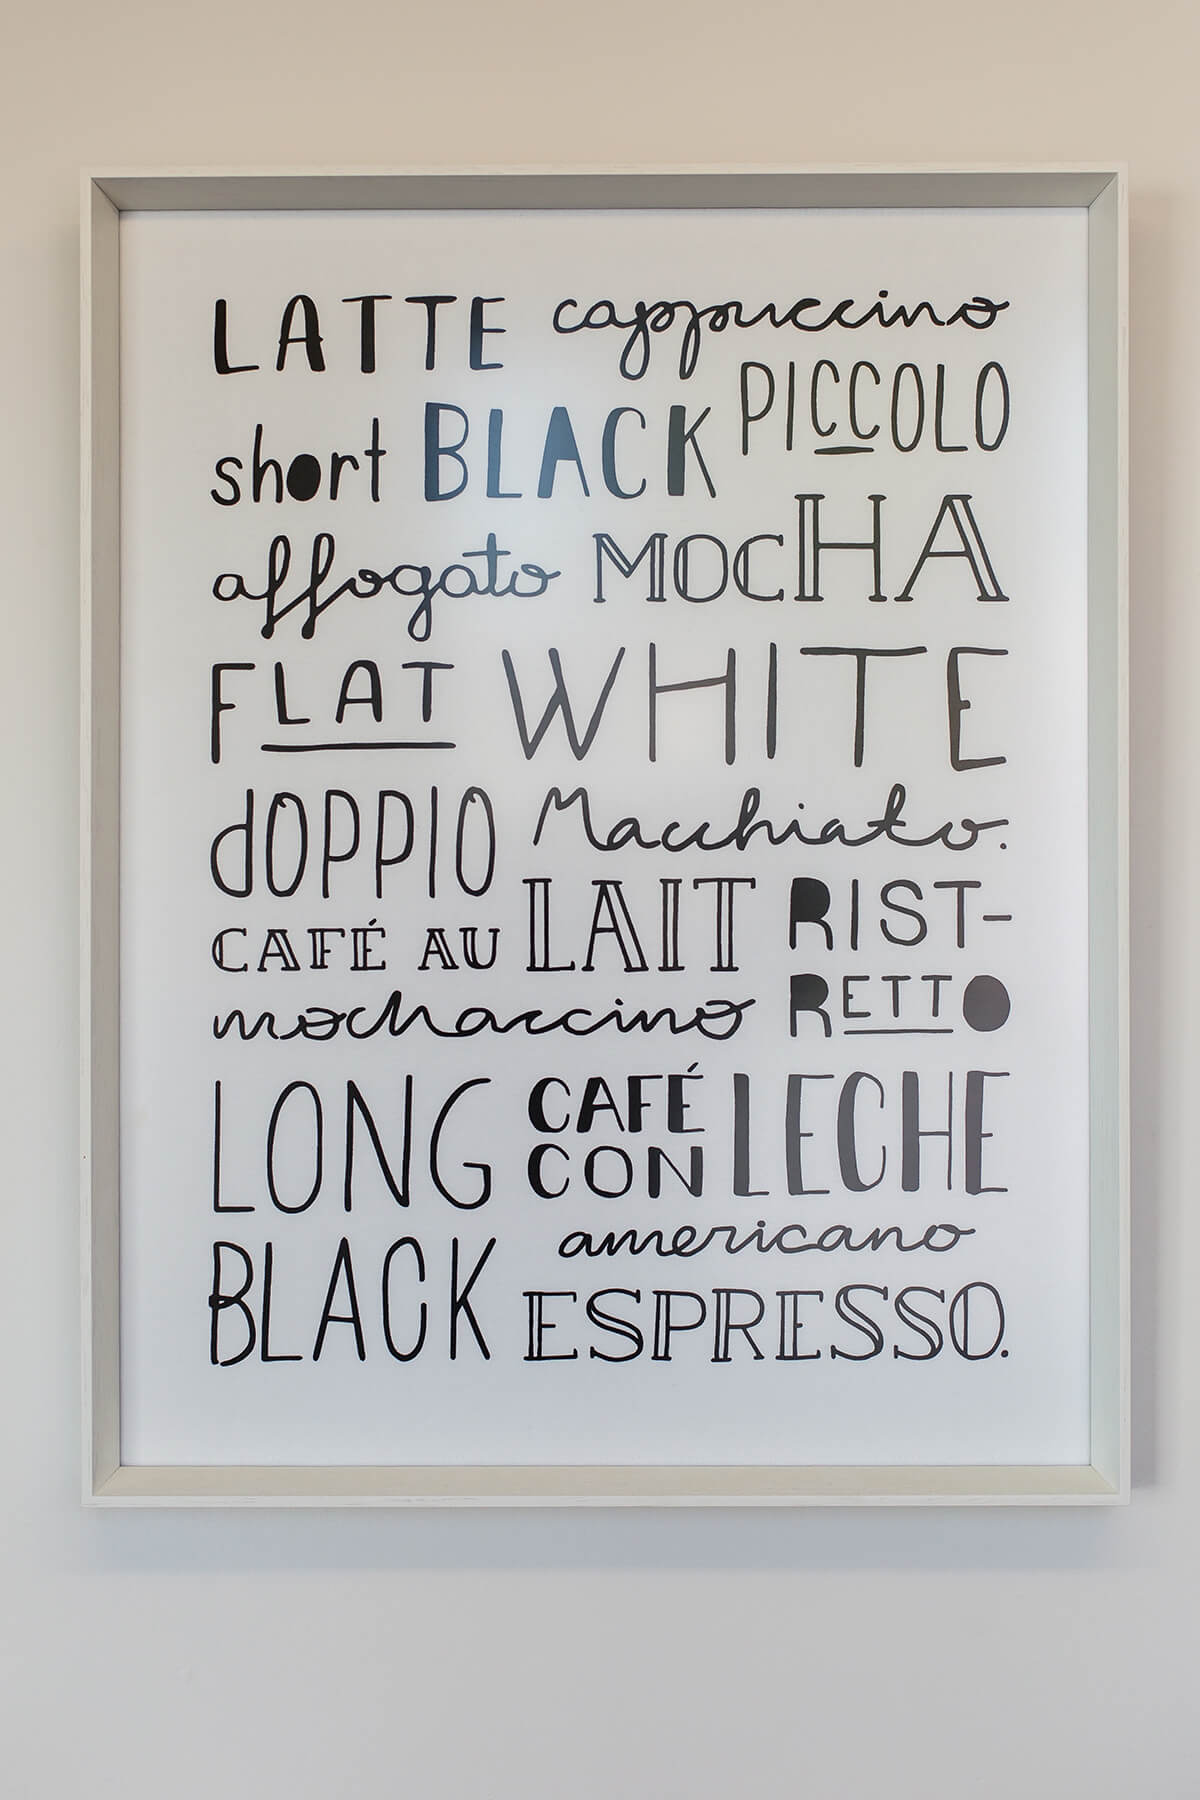 LATTE cappuccino
short BLACK PICCOLO
affogato MOCHA
FLAT WHITE
dOPPIO Macchiato.
CAFÉ AU LAIT RIST-
RETTO
mochaccino
LONG
BLACK
CAFÉ
CON LECHE
americano
ESPRESSO.